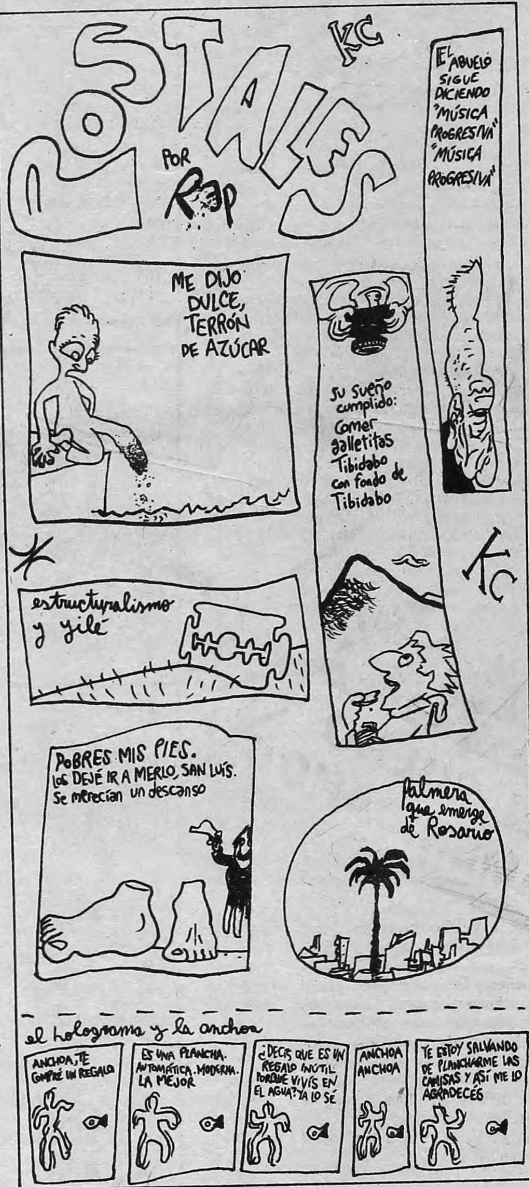 POSTALES
POR
Rep
KC
EL
ABUELO
SIGUE
DICIENDO
"MÚSICA
PROGRESIVA"
"MÚSICA
PROGRESIVA"
ME DIJO
DULCE,
TERRÓN
DE AZÚCAR
su sueño
cumplido:
Comer
galletitas
Tibidabo
con fondo de
Tibidabo
KC
estructuralismo
y yilé
POBRES MIS PIES.
LOS DEJÉ IR A MERLO, SAN LUIS.
Se merecían un descanso
Palmera
que emerge
de Rosario
el holograma y la anchoa
ANCHOA, TE
COMPRÉ UN REGALO
ES UNA PLANCHA.
AUTOMÁTICA. MODERNA.
LA MEJOR
¿DECÍS QUE ES UN
REGALO INÚTIL
PORQUE VIVÍS EN
EL AGUA? YA LO SÉ
ANCHOA
ANCHOA
TE ESTOY SALVANDO
DE PLANCHARME LAS
CAMISAS Y ASÍ ME LO
AGRADECÉS